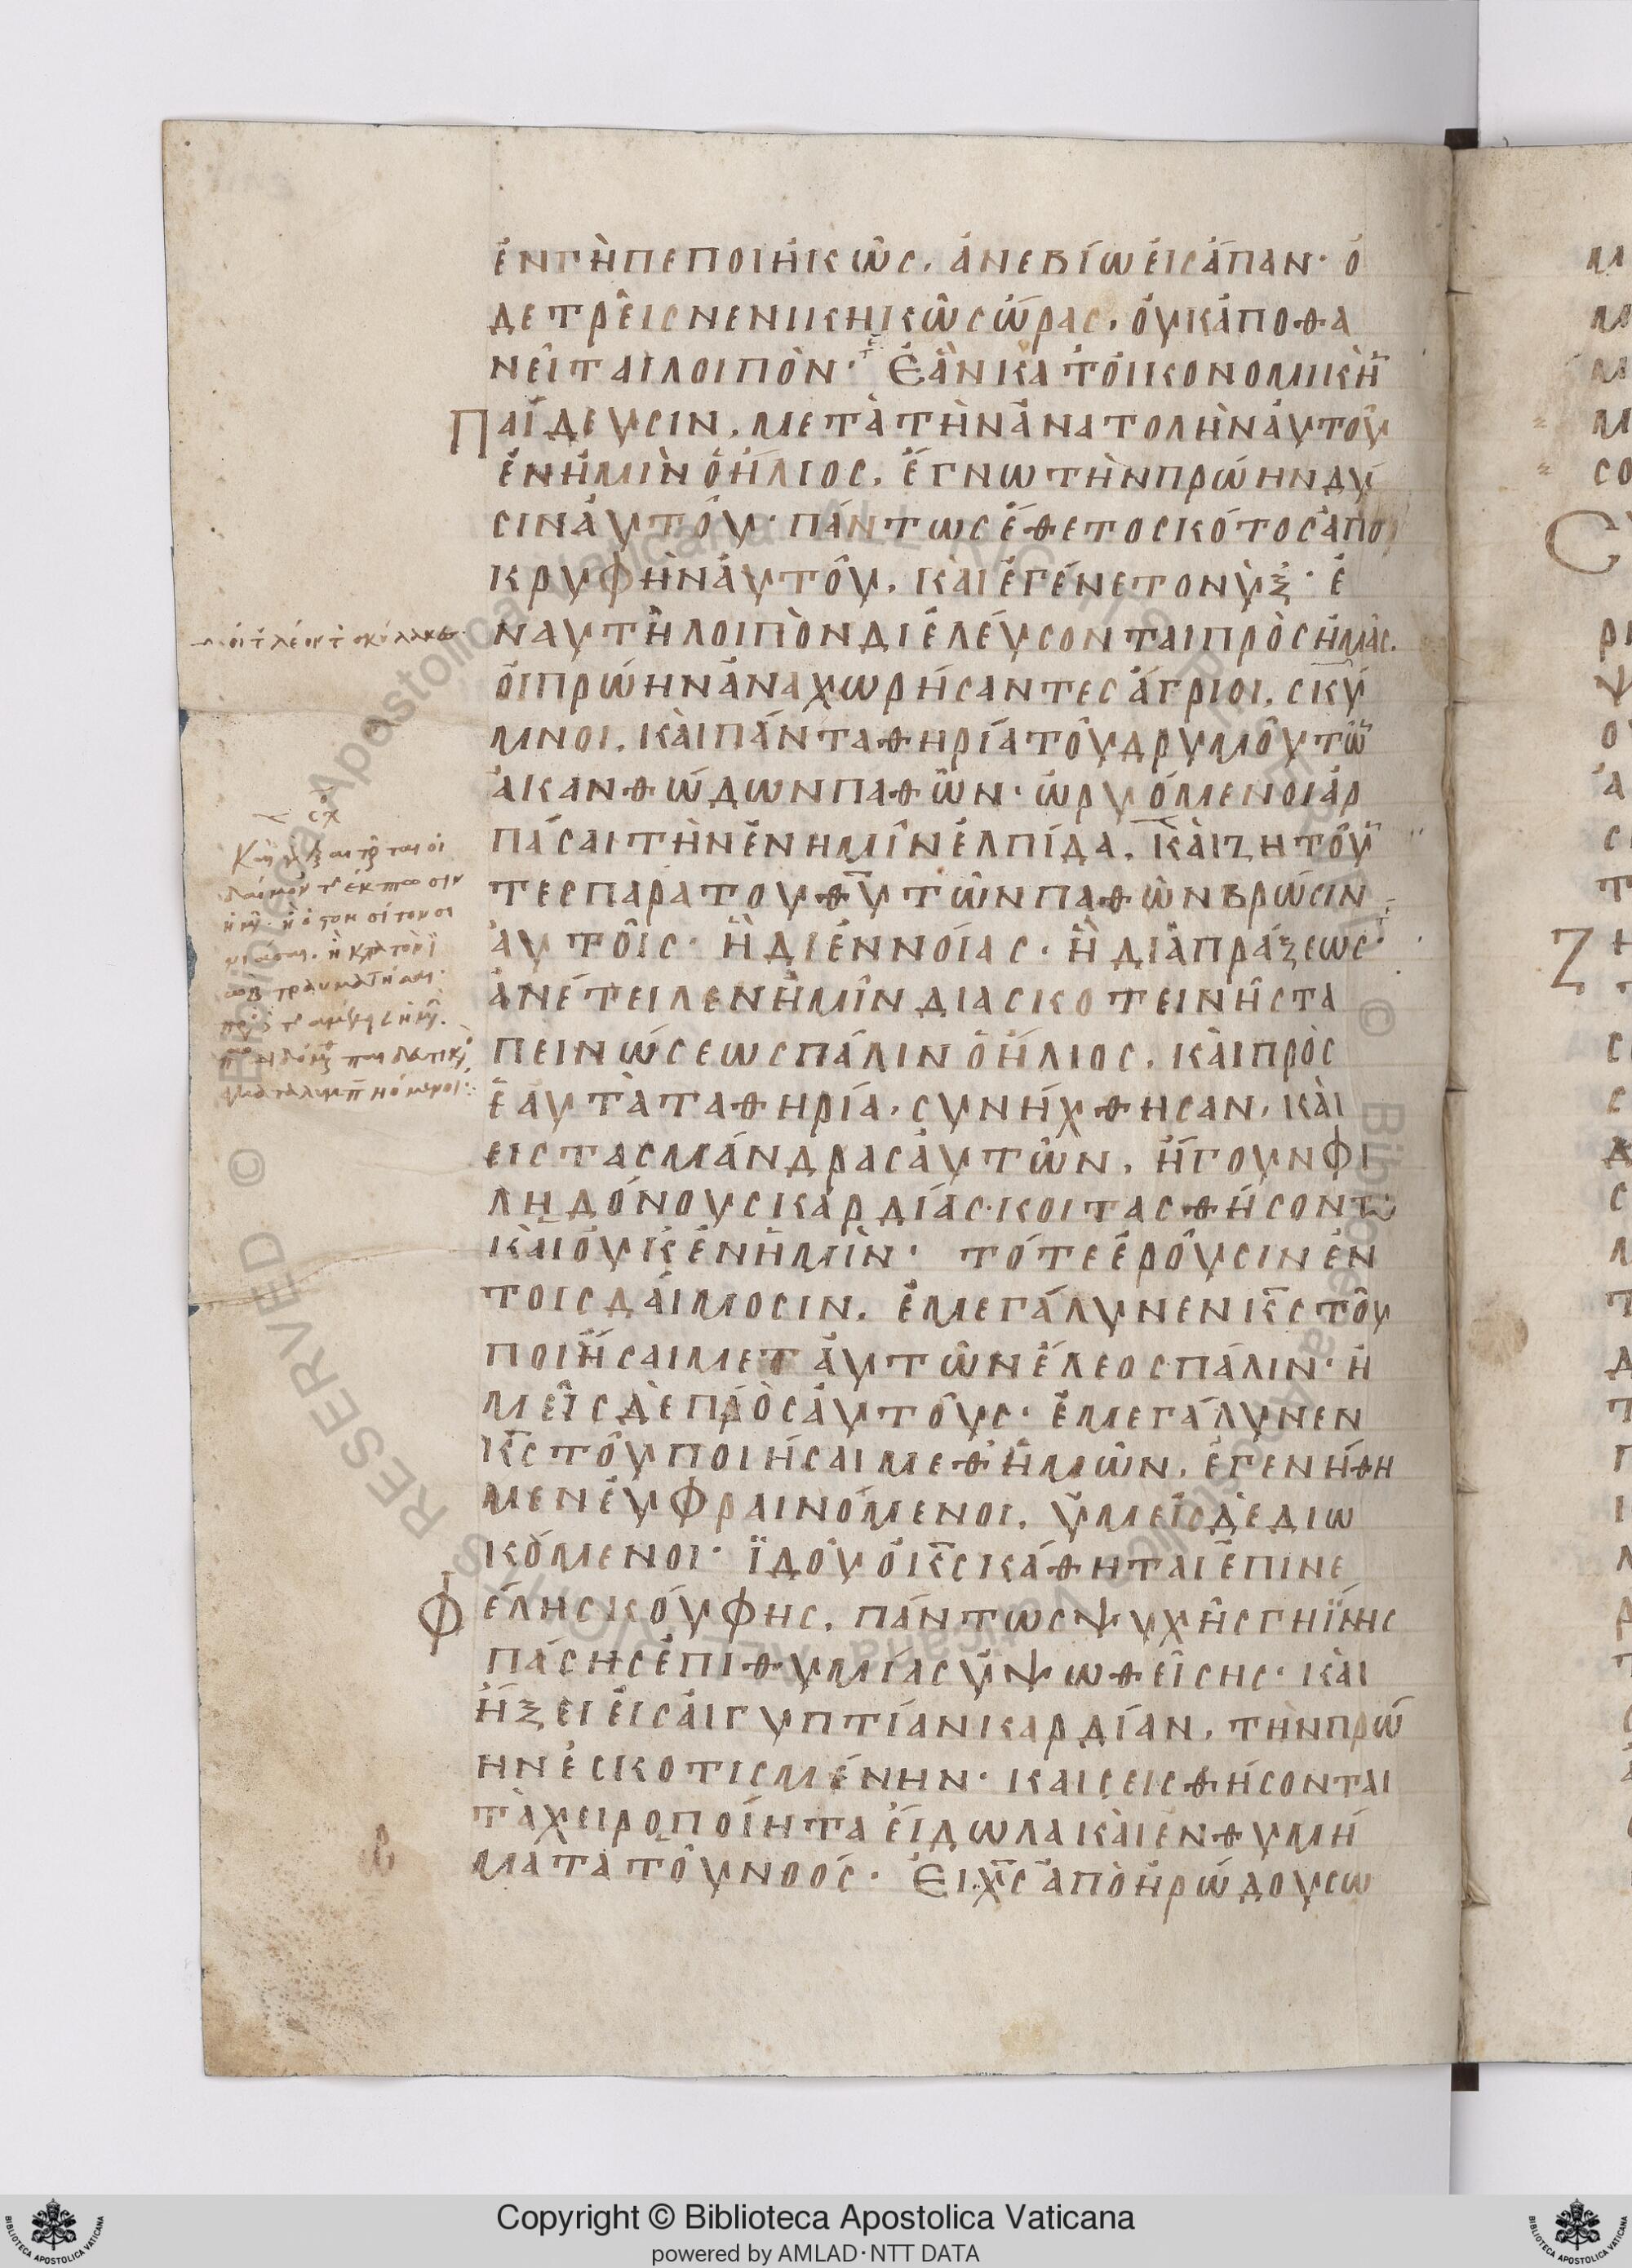 ἐν γῆ πεποιηκὼς, ἀνεβίω εἰς ἅπαν· ὁ
δε τρεῖς νενικηκὼς ὥρας, οὐκ ἀποθα
νεῖται λοιπὸν· Ἐὰν κατ οἰκονομικὴ̄
Παίδευσιν, μετὰ τὴν ἀνατολὴν ἀυτοῦ
ἐν ἡμῖν ὁ ἥλιος, ἔγνω τὴν πρώην δύ
σιν ἀυτοῦ· πάντως ἔθετο σκότος ἀπο
κρυφὴν ἀυτοῦ, κὰι ἐγένετο νὺξ· ἐ
ν αυτῆ λοιπὸν διελέυσονται πρὸς ἡμᾶς.
ὁι πρώην ἀναχωρήσαντες ἄγριοι, σκύ
μνοι, κὰι πάντα θηρία τοῦ δρυμοῦ τῶ̄
ἀκανθώδων παθῶν· ὠρυόμενοι ἁρ
πάσαι τὴν ἐν ημῖν ἐλπίδα, κὰι ζητοῦ̄
τες παρα του θ̄ῡ τῶν παθῶν βρῶσιν
ἀυτοῖς· ἢ δι ἐννόιας· ἢ διὰ πράξεως·
ἀνέτειλεν ἡμῖν δια σκοτεινῆς τα
πεινώσεως πάλιν ὁ ἥλιος, κὰι πρὸς
ἑαυτὰ τα θηρία, συνήχθησαν, κὰι
εις τας μάνδρας ἀυτῶν, ἤγουν φι
ληδόνους καρδίας· κοιτασθήσοντ
κὰι ὀυκ ἐν ἡμῖν· τότε ἐροῦσιν ἐν
τοις δάιμοσιν, ἐμεγάλυνεν κ̄ς̄ τοῦ
ποιῆσαι μετ ἀυτῶν ἔλεος πάλιν· ἡ
μεῖς δὲ πρὸς ἀυτοῦς· ἐμεγάλυνεν
κ̄ς̄ τοῦ ποιήσαι μεθ ἡμῶν, ἐγενήθη
μεν ἐυφραινόμενοι, ὑμεῖς δὲ διω
κόμενοι· ἰδοῦ ὁ κ̄ς̄ κάθηται ἐπι νε
Φέλης κούφης, πάντως ψυχῆς γηΐνης
πάσης ἐπιθυμιας ὑψωθεῖσης· κὰι
ἥξει ἐις ἀιγυπτίαν καρδίαν, τὴν πρώ
ην ἐσκοτισμένην· και σεισθήσονται
τὰ χειροποίητα ἔιδωλα κὰι ἐνθυμή
ματα τοῦ νοός· Ἐι χ̄ς̄ ἀπὸ ἡρώδου σω
Copyright © Biblioteca Apostolica Vaticana
powered by AMLAD·NTT DATA